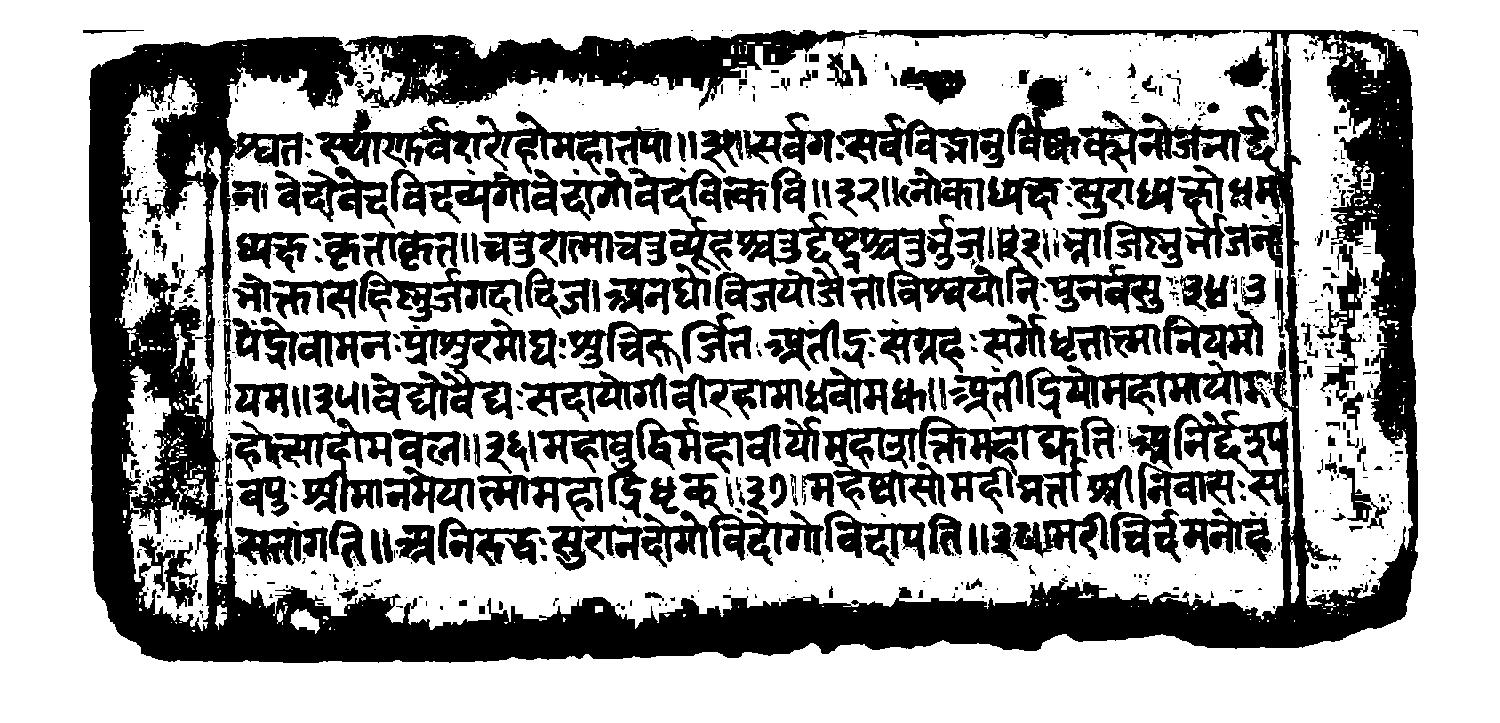 श्वतः स्थाणुर्वरारोहो महातपा॥३१॥सर्वगः सर्वविद्भानुर्विष्वक्सेनो जनार्द्द
न। वेदो वेदविदव्यंगो वेदांगो वेदवित्कवि॥३२॥लोकाध्यक्षः सुराध्यक्षो धर्मा
ध्यक्षः कृताकृत॥चतुरात्मा चतुर्व्यूहश्चतुर्द्दंष्ट्रश्चतुर्भुज॥३३॥भ्राजिष्णुर्भोजनं
भोक्ता सहिष्णुर्जगदादिज। अनघो विजयो जेता विश्वयोनिः पुनर्वसु॥३४॥उ
पेंद्रो वामनः प्रांशुरमोघः शुचिरूर्जित। अतींद्रः संग्रहः सर्गो धृतात्मा नियमो
यम॥३५॥वेद्यो वैद्यः सदायोगी वीरहा माधवो मधु॥अतींद्रियो महामायो म
होत्साहो मबल॥३६॥महाबुद्धिर्महावीर्यो महाशक्तिमहाद्युति अनिर्द्देश्य
वपुः श्रीमानमेयात्मा महाद्रिधृक्॥३७॥महेष्वासो महीभर्त्ता श्रीनिवासः स
सतांगति॥अनिरुद्धः सुरानंदो गोविंदो गोविदांपति॥३८॥मरीचिर्दमनो हं